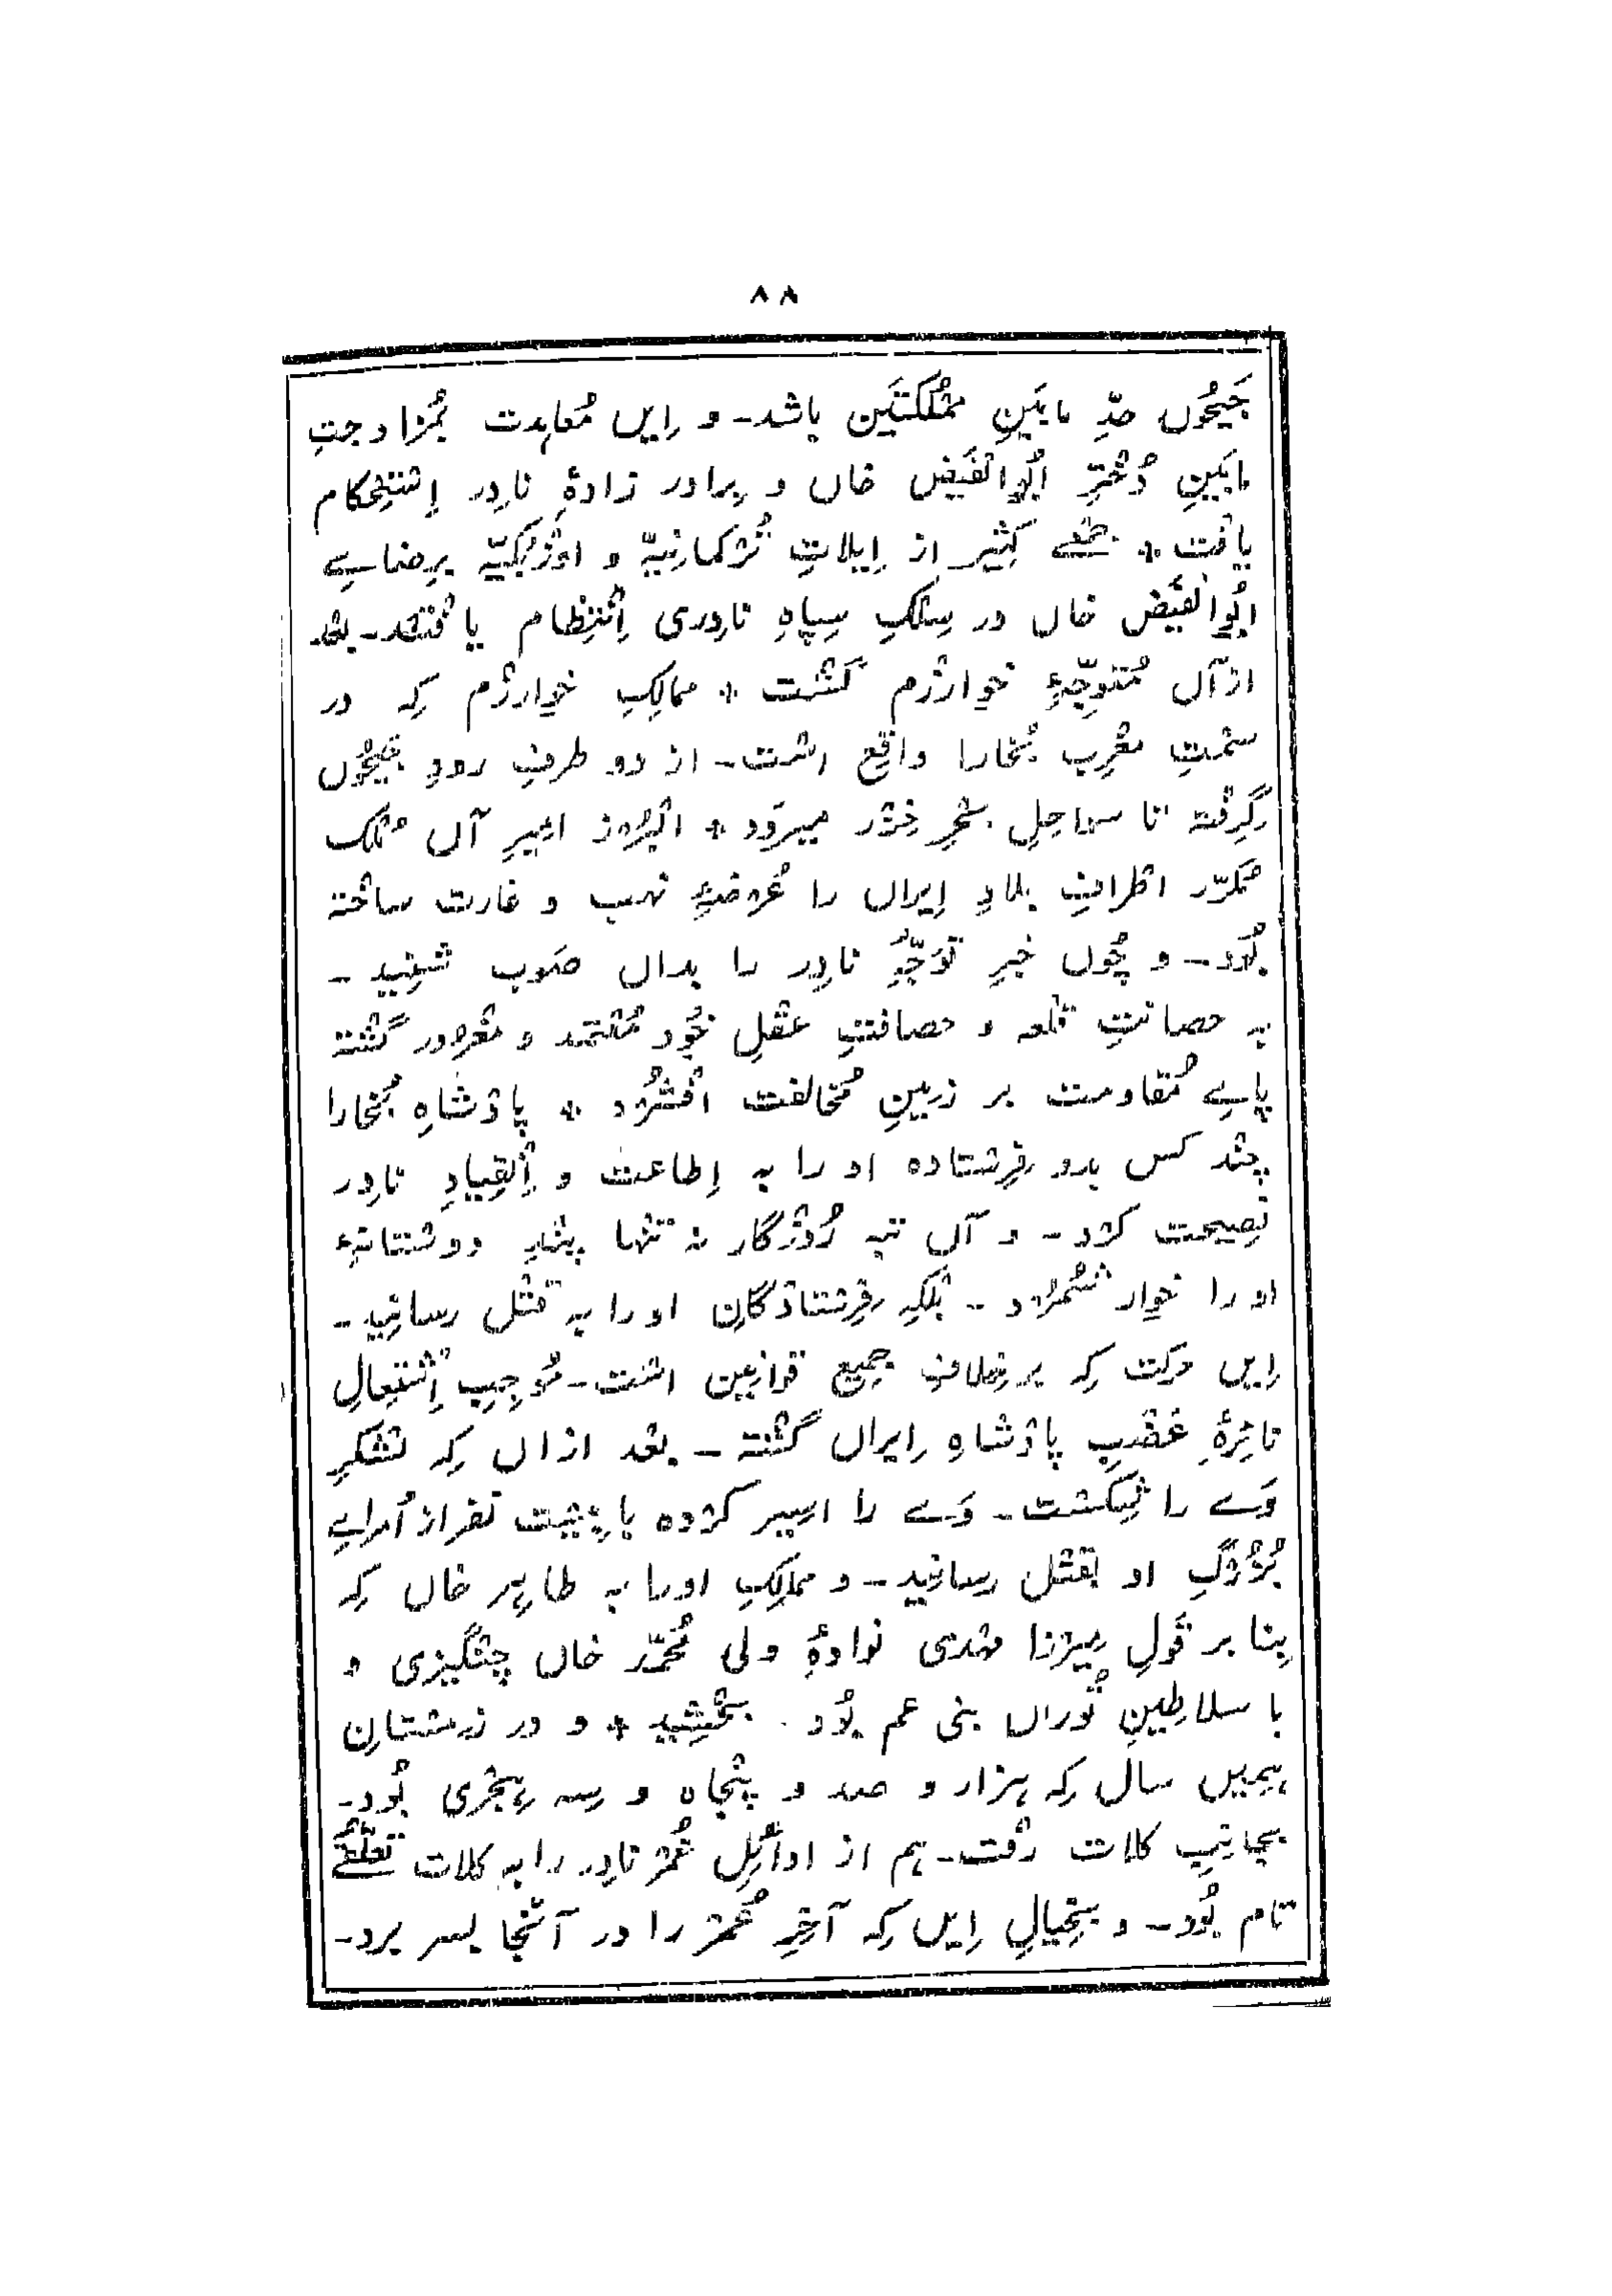 ۸۸
جَیحُوں حدِّ مابَینِ مَمْلکتَین باشد۔ و اِیں مُعاہدت بمُزاوجتِ
مابَینِ دُخْترِ ابُوالفَیض خاں و برادر زادۂ نادِر اِسْتِحکام
یافْت * جمْعے کثِیر از اِیلاتِ تُرْکمانِیّہ و اوزْبکِیّہ برضاے
ابُوالفَیْض خاں در سِلْکِ سِپاہِ نادِری اِنْتِظام یافْتند۔ بعْد
ازآں مُتوجِّہِ خوارزْم گشْت * ممالِکِ خوارزْم کِہ در
سمْتِ مغْرِب بُخارا واقِع اسْت۔ از دو طرفِ رودِ جَیحُوں
گِرِفْتہ تا ساحِلِ بحْرِ خزْر میروَد * البرْوز امیرِ آں مُلْک
مُکرّر اطْرافِ بلادِ اِیراں را عُرضۂِ نہب و غارت ساخْتہ
بُود۔ و چُوں خبرِ توَجُّہِ نادِر را بداں صَوب شنِید۔
بہ حصانتِ قلْعہ و حصافتِ عقْلِ خُود مُعْتمد و مغْرور گشْتہ
پاےِ مُقاومت بر زمِینِ مُخالفت افْشُرْد * پادْشاہِ بُخارا
چنْد کس بدو فِرِسْتادہ او را بہ اِطاعت و اِنْقِیادِ نادِر
نصِیحت کرْد۔ و آں تبہ رُوزْگار نہ تنْہا پنْدِ دوسْتانۂِ
او را خوار شُمُرْد۔ بلْکِہ فِرِسْتادْگانِ او را بہ قتْل رسانِید۔
اِیں حرکت کِہ برخِلافِ جمِیع قوانِین اسْت۔ مُوجِبِ اِشْتِعالِ
نائِرۂِ غضْبِ پادْشاہِ اِیراں گشْتہ۔ بعْد ازاں کِہ لشْکرِ
وَے را شِکست۔ وَے را اسِیر کرْدہ با بِیست نفر از اُمراےِ
بُزُرْگِ او بقتْل رسانِید۔ و ممالِکِ اورا بہ طاہِر خاں کِہ
بِنا بر قَولِ مِیرْزا مہْدی نوادۂِ ولی مُحمّد خاں چنْگیزی و
با سلاطِینِ تُوراں بنی عم بُود۔ بخْشِید * و در زمِسْتانِ
ہمِیں سال کِہ ہزار و صد و پنْجاہ و سِہ ہِجْری بُود۔
بجانِبِ کلات رفْت۔ ہم از اوائِلِ عُمْر نادِر را بہ کلات تعلُّقے
تام بُود۔ و بخِیالِ اِیں کِہ آخِرِ عُمْر را در آنْجا بسر برد۔